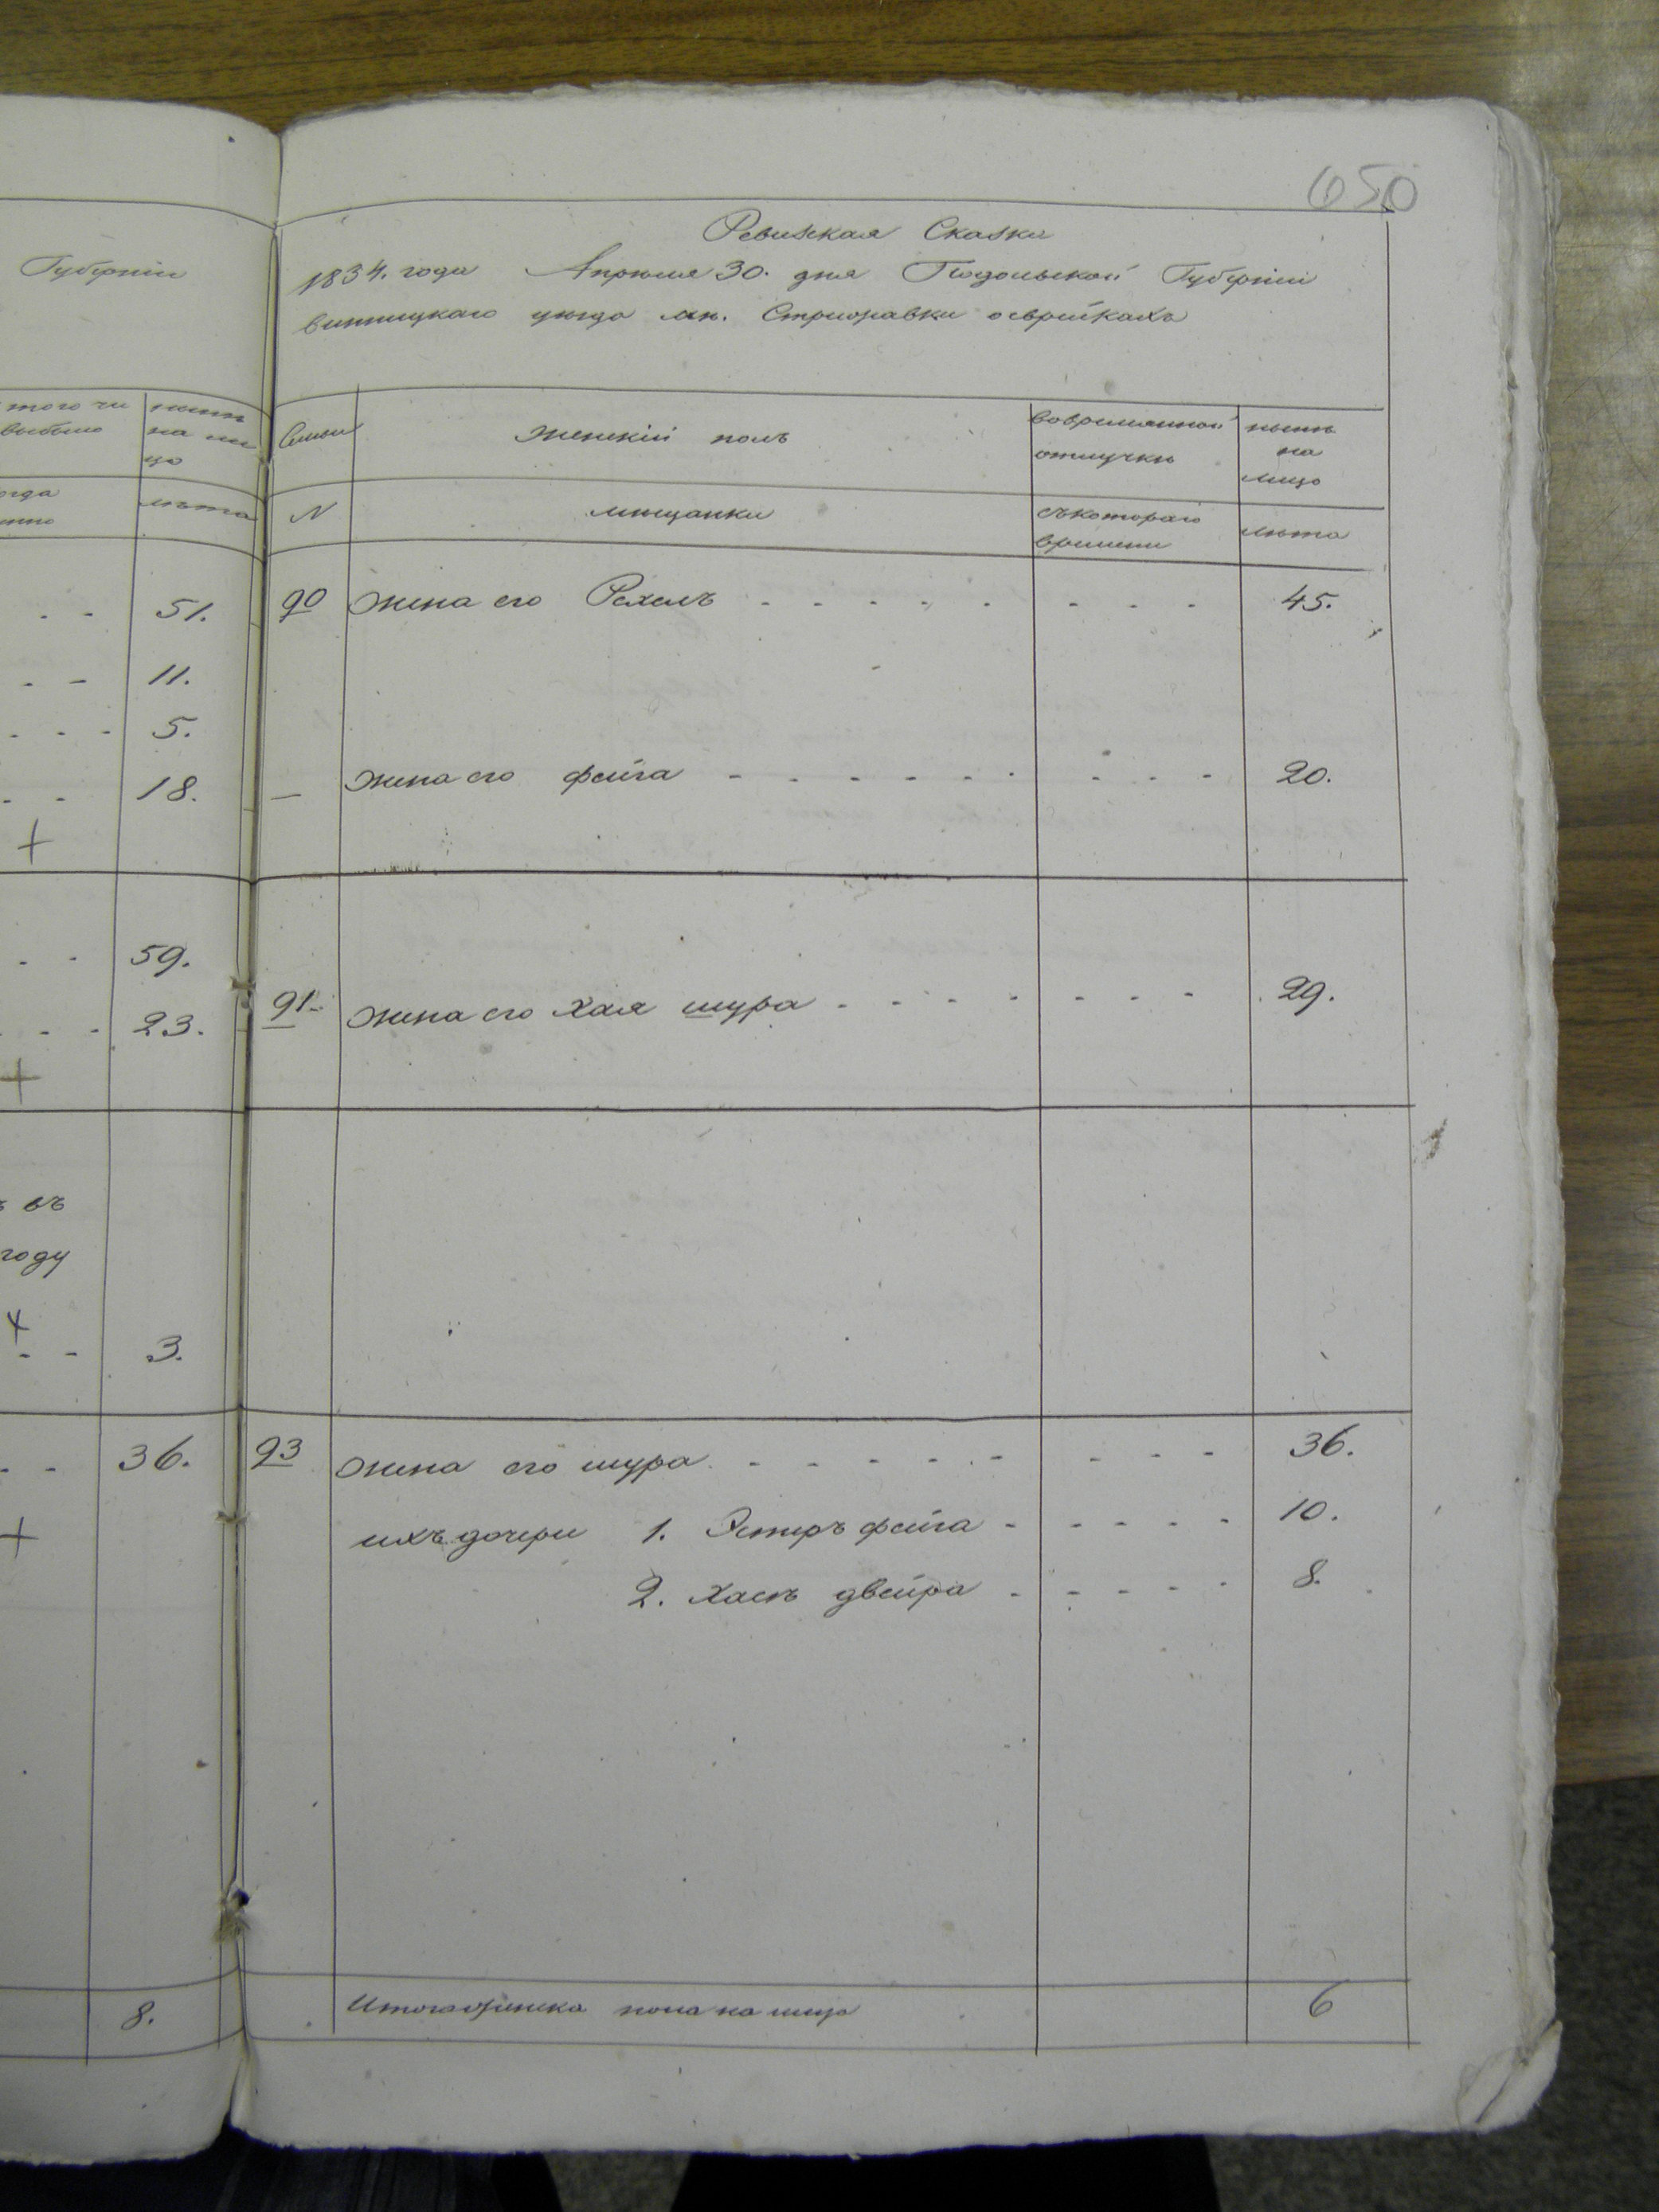 Губернiи
того чи
выбыло
нынѣ
на ли
цо
огда
лѣта
51.
11.
5.
18.
59.
23.
въ
году
3.
36.
8.
650
Ревизкая Сказка
1834. года Апрѣля 30. дня Подольской Губернiи
винницкаго уѣзда мѣ. Стрижавки о еврейкахъ
Семьи
женскiй полъ
вовременной
отлучкѣ
нынѣ
на
лицо
N
мѣщанки
съкотораго
времени
лѣта
90 жена его Рехель 45.
жена его фейга 20.
91 жена его Хая шура 29.
93 жена его шура 36.
ихъ дочери 1. Эстеръ фейга 10.
2. Хаспъ двейра 8.
Итого женска пола на лицо 6